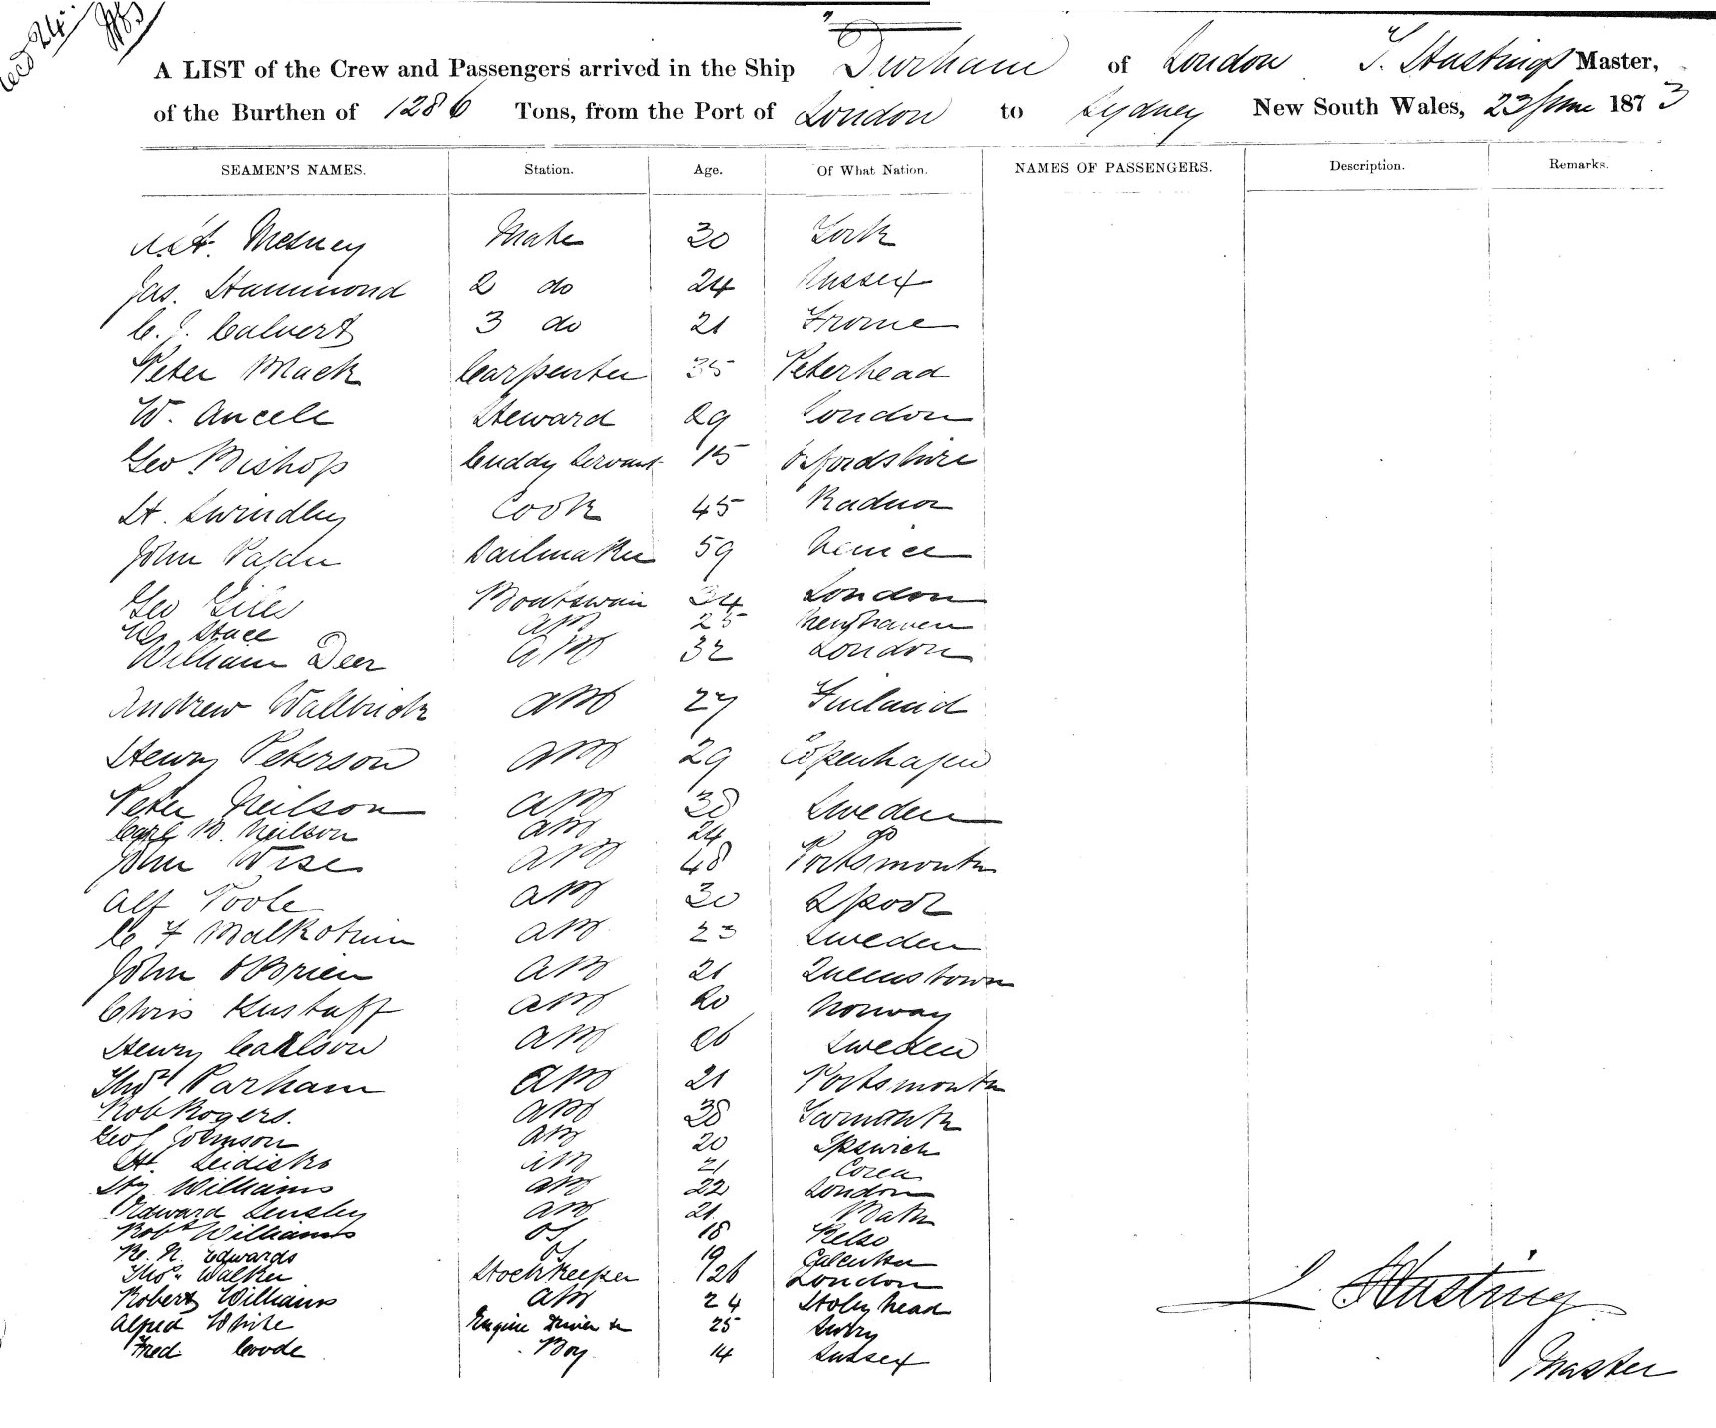 A LIST of the Crew and Passengers arrived in the Ship Durham of London Hastings Master,
of the Burthen of 1286 Tons, from the Port of London to Sydney New South Wales, 23 June 1873
SEAMEN'S NAMES. Station. Age. Of What Nation. NAMES OF PASSENGERS. Description. Remarks.
Mesney Mate 30 York
Jas. Hammond 2 do 24 Sussex
C. J. Calvert 3 do 21 Frome
Peter Mack Carpenter 35 Peterhead
W. Ancell Steward 29 London
Geo Bishop Cuddy Servant 15 Oxfordshire
H. Swindley Cook 45 Radnor
John Sailmaker 59 Venice
Geo Giles Boatswain 34 London
Stace AB 25 Newhaven
William Deer AB 32 London
Andrew Wallbrick AB 27 Finland
Henry Peterson AB 29 Copenhagen
Peter Neilson AB 38 Sweden
Carl B. Neilson AB 24 Do
John Wise AB 48 Portsmouth
Alf Poole AB 30 Lpool
C F AB 23 Sweden
John OBrien AB 21 Queenstown
Chris Kustaff AB 20 Norway
Henry Carlson AB 26 Sweden
Thos Parham AB 21 Portsmouth
Rob Rogers. AB 38 Yarmouth
Geo Johnson AB 20 Ipswich
AB 21
Hy Williams AB 22 London
Edward AB 21. Bath
Robt Williams OS 18 Kelso
R. N. Edwards OS 19 Calcutta
Thos. Walker Storekeeper 26 London
Robert Williams AB 24 Holyhead
Alfred White Engine Driver 25 Surry
Fred Goode Boy 14 Sussex
Hastings
Master